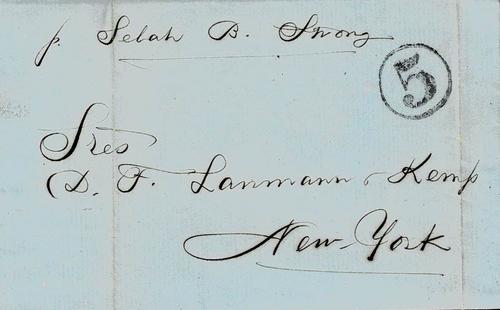 p. Selah B. Strong
5
Sres
D. F. Lanmann & Kemp.
New-York